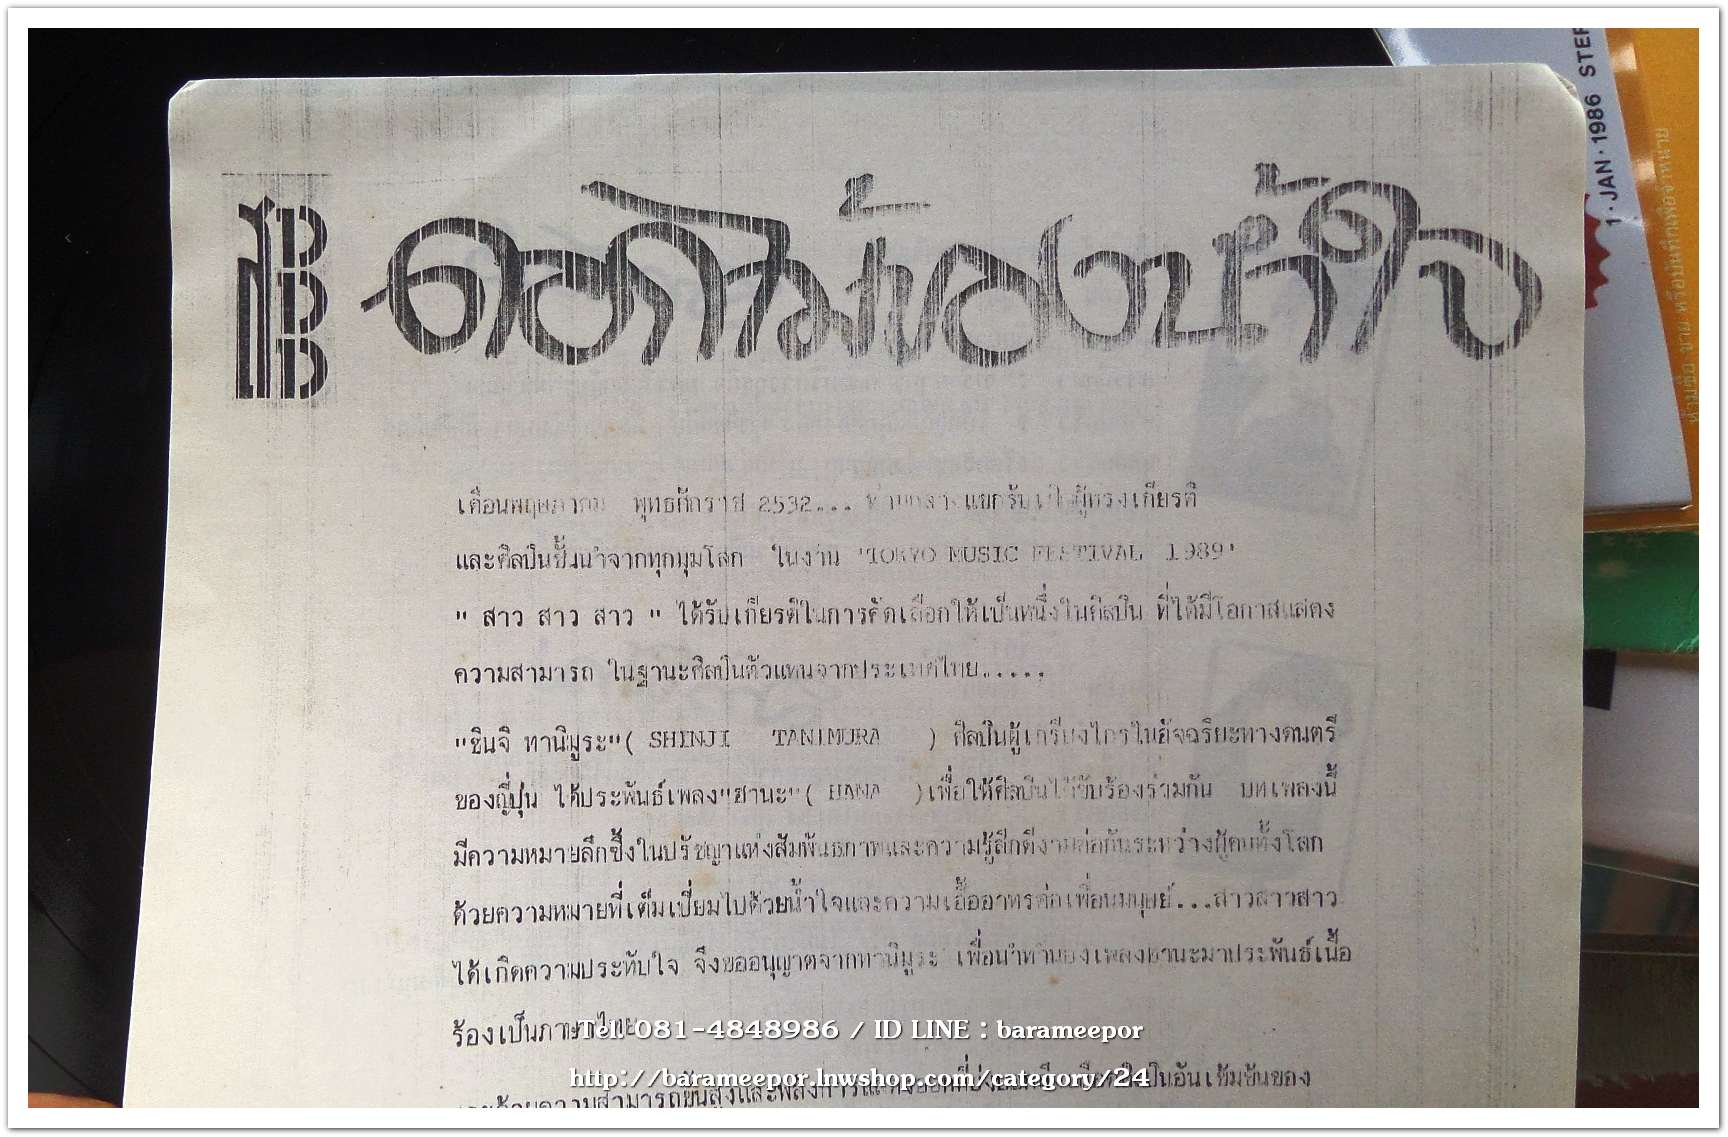 สาว สาว สาว
ดอกไม้ของน้ำใจ
เดือนพฤษภาคม พุทธศักราช 2532... ท่ามกลางแขกรับเชิญผู้ทรงเกียรติ
และศิลปินชั้นนำจากทุกมุมโลก ในงาน 'TOKYO MUSIC FESTIVAL 1989'
" สาว สาว สาว " ได้รับเกียรติในการคัดเลือกให้เป็นหนึ่งในศิลปิน ที่ได้มีโอกาสแสดง
ความสามารถ ในฐานะศิลปินตัวแทนจากประเทศไทย.....
"ชินจิ ทานิมูระ"( SHINJI TANIMURA ) ศิลปินผู้เกรียงไกรในอัจฉริยะทางดนตรี
ของญี่ปุ่น ได้ประพันธ์เพลง"ฮานะ"( HANA )เพื่อให้ศิลปินได้ขับร้องร่วมกัน บทเพลงนี้
มีความหมายลึกซึ้งในปรัชญาแห่งสัมพันธภาพและความรู้สึกดีงามต่อกันระหว่างผู้คนทั้งโลก
ด้วยความหมายที่เต็มเปี่ยมไปด้วยน้ำใจและความเอื้ออาทรต่อเพื่อนมนุษย์...สาวสาวสาว
ได้เกิดความประทับใจ จึงขออนุญาตจากทานิมูระ เพื่อนำทำนองเพลงฮานะมาประพันธ์เนื้อ
ร้องเป็นภาษาไทย
และด้วยความสามารถขั้นสูงและพลังการแสดงออกที่บ่งบอกถึง อันเข้มข้นของ
1·JAN·1986 STER
ห้ามซื้อ ขาย หรือบันทึกเพื่อจำหน่าย
Tel 081-4848986 / ID LINE : barameepor
http://barameepor.lnwshop.com/category/24